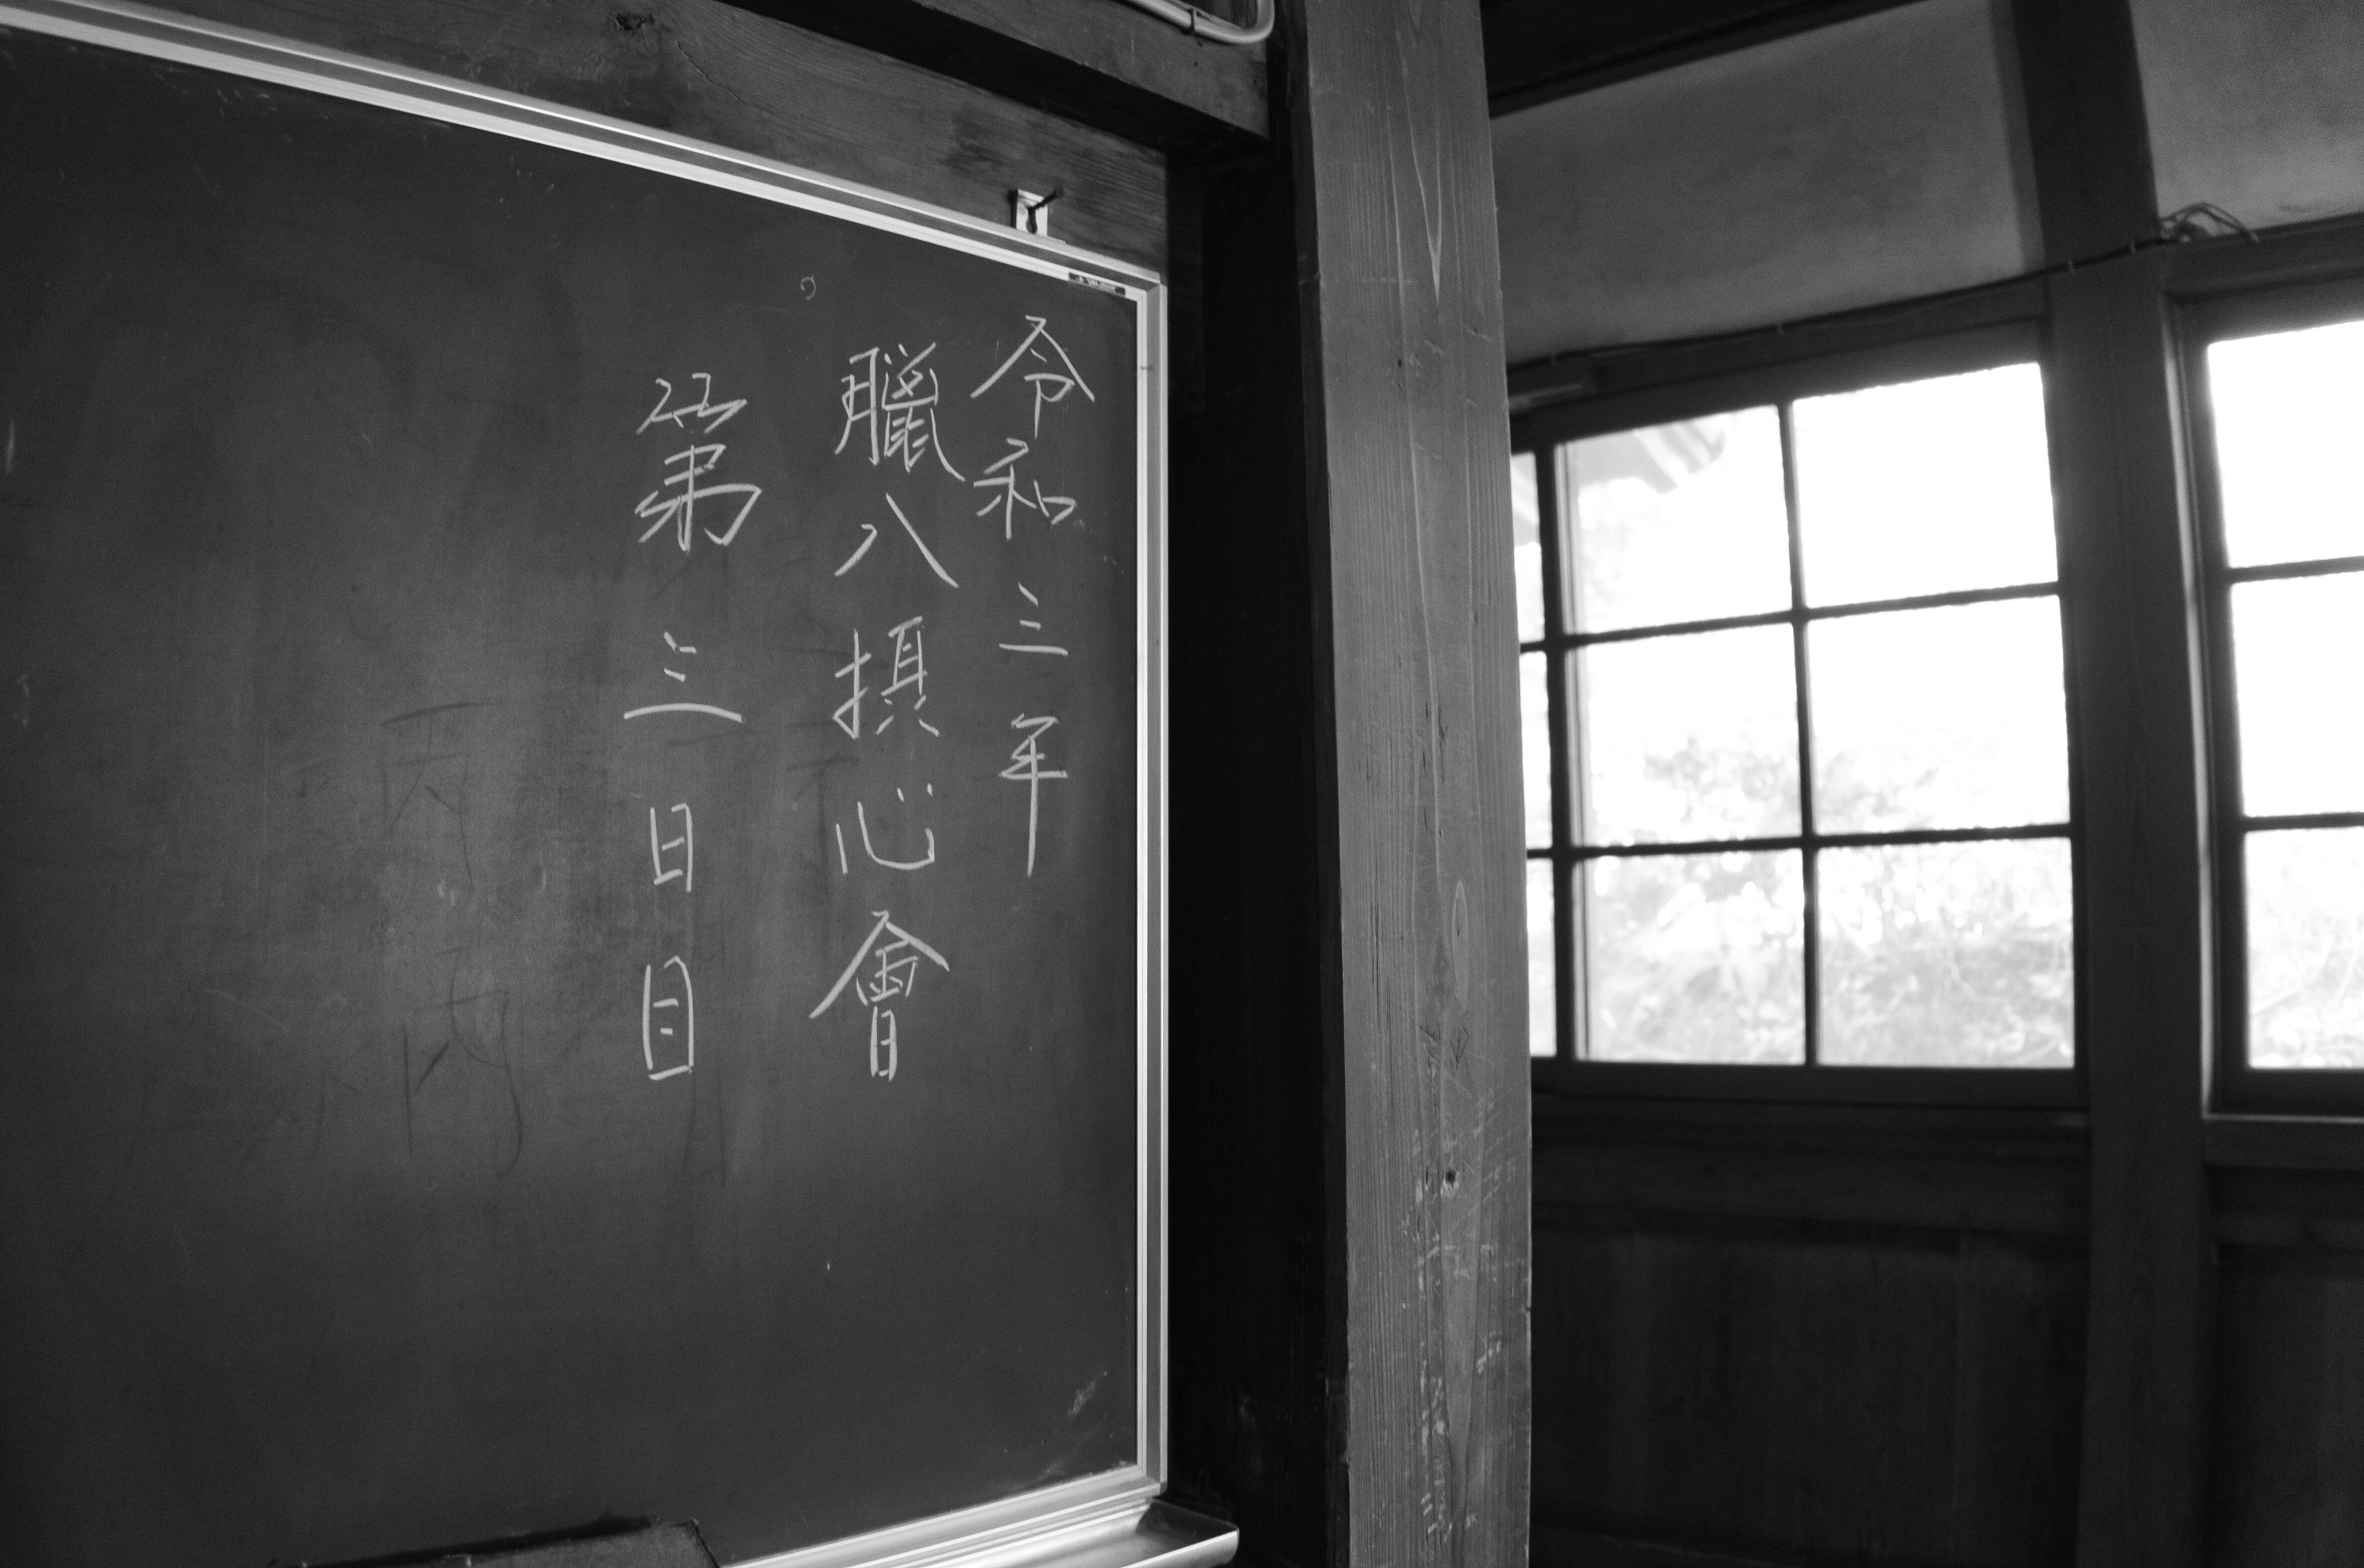 令和三年
臘八摂心會
第三日目